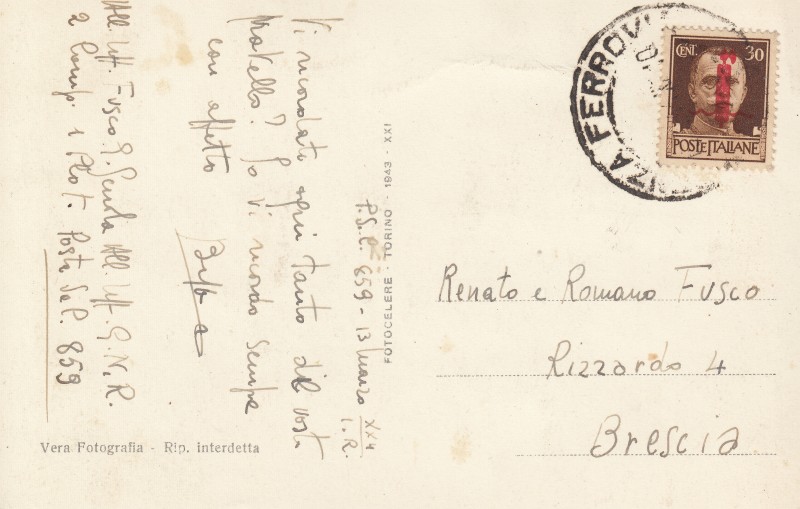 P.d.C. 859 - 13 marzo XXII
I.R.
Vi ricordate ogni tanto del vostro
Con affetto
All. Uff. Fusco G. Scuola All. Uff. G.N.R.
2 Comp. 1 Plot. Posta Sal. 859
FOTOCELERE - TORINO - 1943 - XXI
Vera Fotografia - Rip. interdetta
CENT. 30
POSTE ITALIANE
FERROVI
Renato e Romano Fusco
Rizzardo 4
Brescia